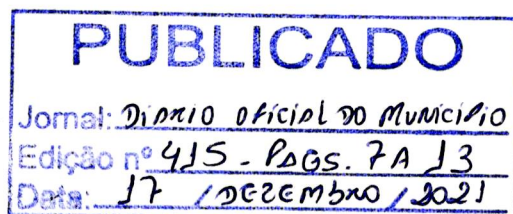 PUBLICADO
Jornal: DIÁRIO OFICIAL DO MUNICÍPIO
Edição nº 415 - PÁGS. 7 A 13
Data: 17 / DEZEMBRO / 2021